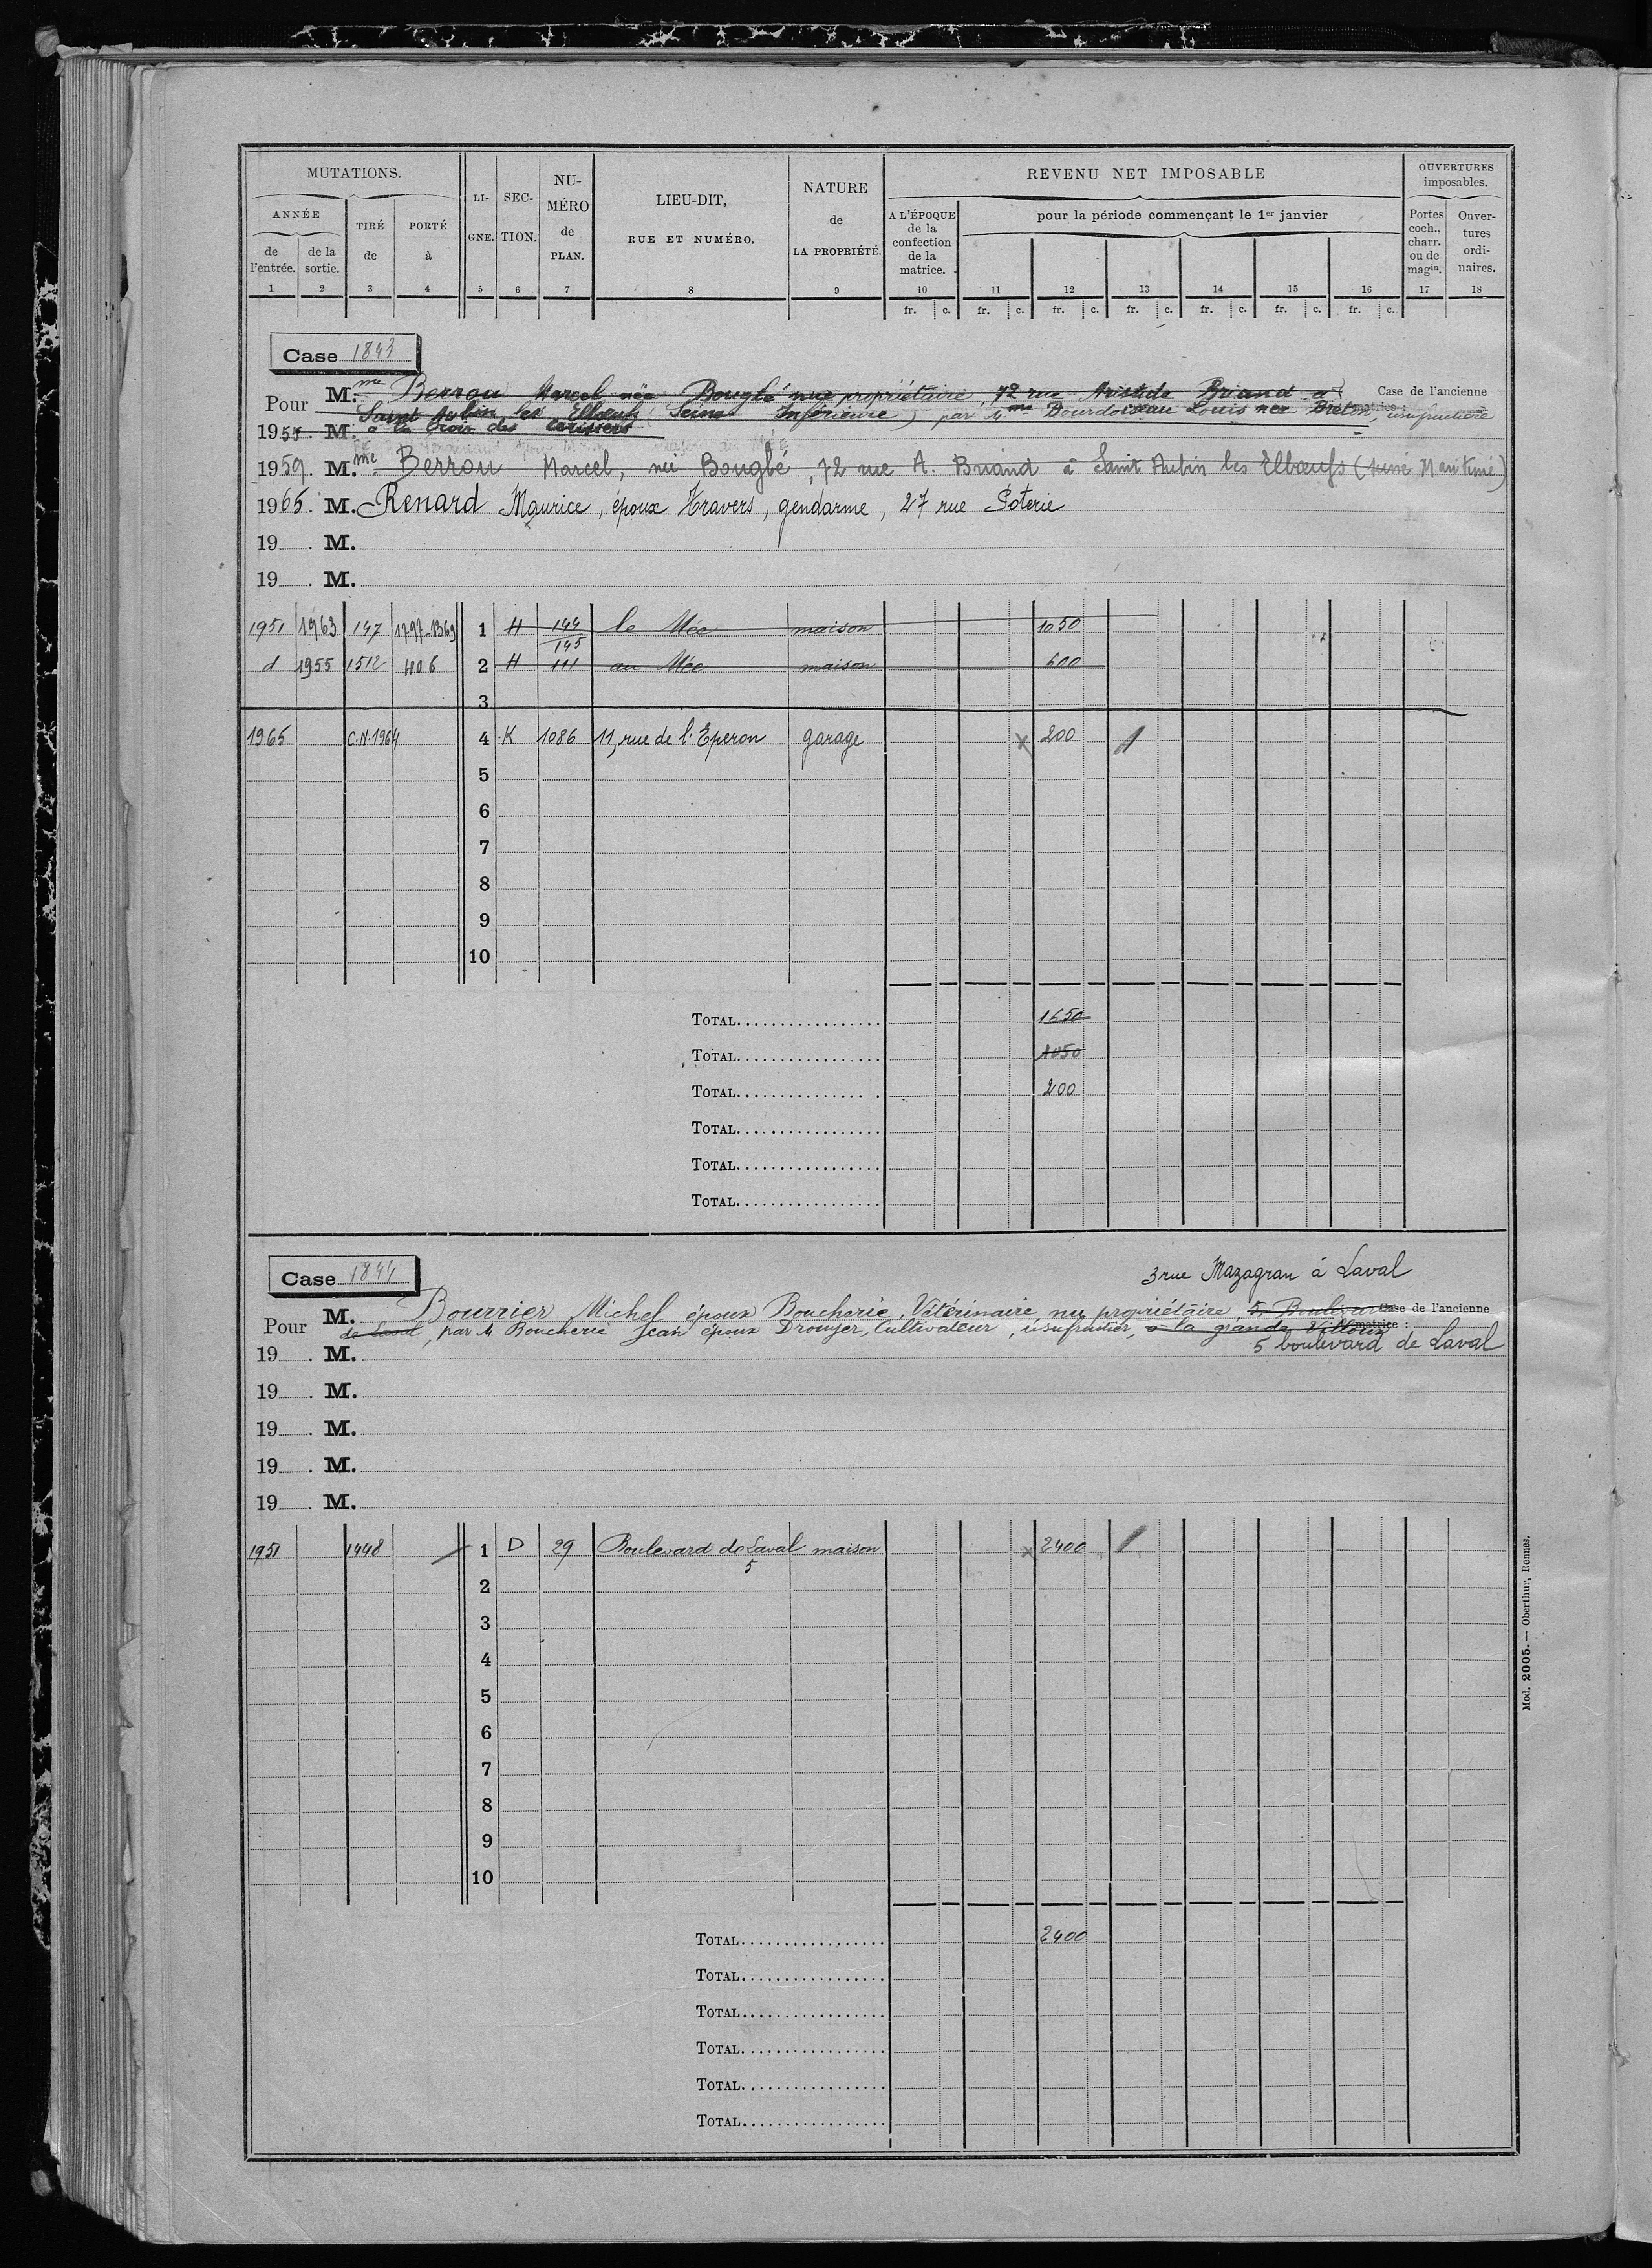 MUTATIONS.
ANNÉE
de l'entrée. de la sortie. TIRÉ de PORTÉ à LI-GNE. SEC-TION. NU-MÉRO de PLAN. LIEU-DIT, RUE ET NUMÉRO. NATURE de LA PROPRIÉTÉ.
REVENU NET IMPOSABLE
A L'ÉPOQUE de la confection de la matrice. pour la période commençant le 1er janvier
OUVERTURES imposables.
Portes coch., charr. ou de magin. Ouver-tures ordi-naires.
1 2 3 4 5 6 7 8 9 10 11 12 13 14 15 16 17 18
fr. c. fr. c. fr. c. fr. c. fr. c. fr. c. fr. c.
Case 1843
Pour Mme Berrou Marcel née Bouglé nue propriétaire, 72 rue Aristide Briand à
Case de l'ancienne matrice :
Saint Aubin les Elboeuf (Seine Inférieure) par Mme Dourdoiseau Louis née Breton, usufruitière
1955 M. à la Croix des
1959. Mme Berrou Marcel, née Bouglé, 72 rue A. Briand à Saint Aubin les Elboeufs (Seine Maritime)
1965. M. Renard Maurice, époux Travers, gendarme, 27 rue Poterie
19 . M.
19 . M.
1951 1963 147 1797-1369 1 H 144 145 le Mée maison 1050
d 1955 1512 406 2 H 111 au Mée maison 600
3
1965 C.N.1964 4 K 1086 11, rue de l'Eperon garage x 200
5
6
7
8
9
10
TOTAL 1650
TOTAL 1050
TOTAL 200
TOTAL
TOTAL
TOTAL
Case 1844
3 rue Mazagran à Laval
Pour M. Bourrier Michel époux Boucherie, Vétérinaire nu propriétaire 5, Boulevard
Case de l'ancienne matrice :
de Laval, par M. Boucherie Jean époux Drouyer, Cultivateur, usufruitier, à la grande
5 boulevard de Laval
19 . M.
19 . M.
19 . M.
19 . M.
19 . M.
1951 1448 1 D 29 Boulevard de Laval 5 maison x 2400
2
3
4
5
6
7
8
9
10
TOTAL 2400
TOTAL
TOTAL
TOTAL
TOTAL
TOTAL
Mod. 2005. — Oberthur, Rennes.